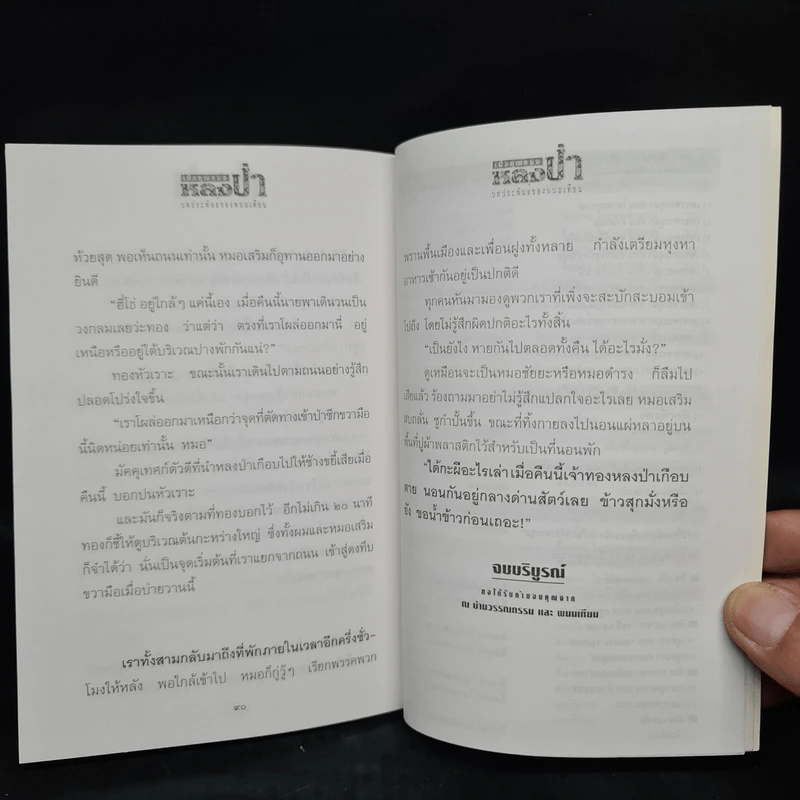 เมื่อผมหนอ
หลงป่า
บทประพันธ์ของพนมเทียน
ห้วยสุด พอเห็นถนนเท่านั้น หมอเสริมก็อุทานออกมาอย่าง
ยินดี
“ฮี่โธ่ อยู่ใกล้ๆ แค่นี้เอง เมื่อคืนนี้นายพาเดินวนเป็น
วงกลมเลยว่ะทอง ว่าแต่ว่า ตรงที่เราโผล่ออกมานี่ อยู่
เหนือหรืออยู่ใต้บริเวณปางพักกันแน่?”
ทองหัวเราะ ขณะนั้นเราเดินไปตามถนนอย่างรู้สึก
ปลอดโปร่งใจขึ้น
“เราโผล่ออกมาเหนือกว่าจุดที่ตัดทางเข้าป่าซีกขวามือ
นี้นิดหน่อยเท่านั้น หมอ”
มัคคุเทศก์ตัวดีที่นำหลงป่าเกือบไปให้ช้างขยี้เสียเมื่อ
คืนนี้ บอกปนหัวเราะ
และมันก็จริงตามที่ทองบอกไว้ อีกไม่เกิน ๒๐ นาที
ทองก็ชี้ให้ดูบริเวณต้นกะหร่างใหญ่ ซึ่งทั้งผมและหมอเสริม
ก็จำได้ว่า นั่นเป็นจุดเริ่มต้นที่เราแยกจากถนน เข้าสู่ดงทึบ
ขวามือเมื่อบ่ายวานนี้
เราทั้งสามกลับมาถึงที่พักภายในเวลาอีกครึ่งชั่ว-
โมงให้หลัง พอใกล้เข้าไป หมอก็กู่วู้ๆ เรียกพรรคพวก
๙๐
หลงป่า
บทประพันธ์ของพนมเทียน
พรานพื้นเมืองและเพื่อนฝูงทั้งหลาย กำลังเตรียมหุงหา
อาหารเช้ากันอยู่เป็นปกติดี
ทุกคนหันมามองดูพวกเราที่เพิ่งจะสะบักสะบอมเข้า
ไปถึง โดยไม่รู้สึกผิดปกติอะไรทั้งสิ้น
“เป็นยังไง หายกันไปตลอดทั้งคืน ได้อะไรมั่ง?”
ดูเหมือนจะเป็นหมอชัยยะหรือหมอดำรง ก็ลืมไป
เสียแล้ว ร้องถามมาอย่าไม่รู้สึกแปลกใจอะไรเลย หมอเสริม
สบถลั่น ชูกำปั้นขึ้น ขณะที่ทิ้งกายลงไปนอนแผ่หลาอยู่บน
พื้นที่ปูผ้าพลาสติกไว้สำหรับเป็นที่นอนพัก
“ได้กะผีอะไรเล่า เมื่อคืนนี้เจ้าทองหลงป่าเกือบ
ตาย นอนกันอยู่กลางด่านสัตว์เลย ข้าวสุกมั่งหรือ
ยัง ขอน้ำข้าวก่อนเถอะ!”
จบบริบูรณ์
ขอได้รับคำขอบคุณจาก
ณ บ้านวรรณกรรม และ พนมเทียน